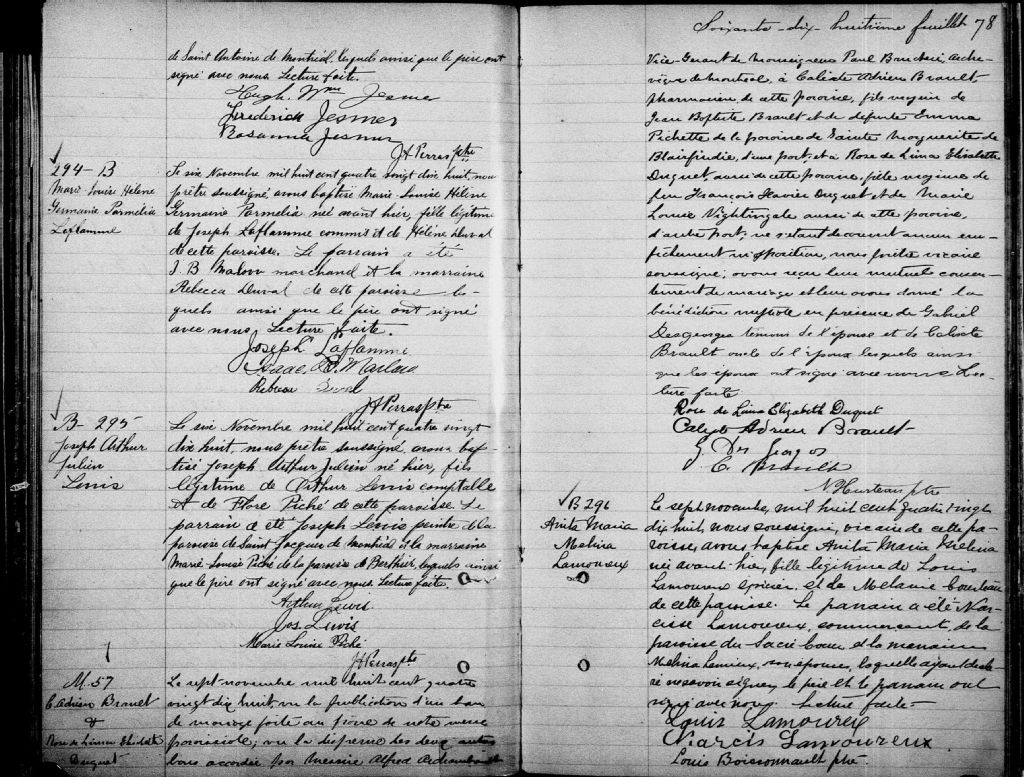 de Saint Antoine de Montréal, lesquels ainsi que le père ont
signé avec nous Lecture faite.
Hugh. Wm Jesmer
Frederick Jesmer
Rosanna Jesmer
JAPerras ptre
294 - B
Marie Louise Hélène
Germaine Parmelia
Laflamme
Le six Novembre mil huit cent quatre vingt dix huit, nous
prêtre soussigné avons baptisé Marie Louise Hélène
Germaine Parmelia née avant hier, fille légitime
de Joseph Laflamme commis et de Hélène Duval
de cette paroisse. Le parrain a été
J. B marchand et la marraine
Rebecca Duval de cette paroisse les-
quels ainsi que le père ont signé
avec nous Lecture faite.
Joseph Laflamme
Isaac
Rebecca Duval
JAPerras Ptre
B - 295
Joseph Arthur
Julien
Lewis
Le six Novembre mil huit cent quatre vingt
dix huit, nous prêtre soussigné, avons bap
tisé Joseph Arthur Julien né hier, fils
légitime de Arthur Lewis comptable
et de Flore Piché de cette paroisse. Le
parrain a été Joseph Lewis peintre de la
paroisse de Saint Jacques de Montréal et la marraine
Marie Louise Piché de la paroisse de Berthier, lesquels ainsi
que le père ont signé avec nous Lecture faite
Arthur Lewis
Jos. Lewis
Marie Louise Piché
JAPerras Ptre
M. 57
C. Adrien Brault
&
Rose de Lima Elisabeth
Duguet
Le sept novembre mil huit cent quatre
vingt dix huit, vu la publication d'un ban
de mariage faite au prône de notre messe
paroissiale; vu la dispense des deux autres
bans accordée par Messire Alfred Archambault
Soixante - dix - huitième feuillet 78
Vice-Gérant de Monseigneur Paul Bruchési, Arche-
vêque de Montréal, à Calixte Adrien Brault
pharmacien, de cette paroisse, fils majeur de
Jean Baptiste Brault et de défunte Emma
Pichette de la paroisse de Sainte Marguerite de
Blairfindie, d'une part, et à Rose de Lima Elisabeth
Duguet, aussi de cette paroisse, fille mineure de
feu François Xavier Duguet et de Marie
Louise Nightingale aussi de cette paroisse,
d'autre part; ne s'étant découvert aucun em-
pêchement ni opposition, nous prêtre vicaire
soussigné, avons reçu leur mutuel consen-
tement de mariage et leur avons donné la
bénédiction nuptiale en présence de Gabriel
Desgeorges témoin de l'épouse et de Calixte
Brault oncle de l'époux lesquels ainsi
que les époux ont signé avec nous Lec-
ture faite
Rose de Lima Elizabeth Duguet
Calixte Adrien Brault
G Des Georges
C. Brault
N Hurteau ptre
B 296
Anita Maria
Melina
Lamoureux
Le sept novembre, mil huit cent quatre vingt
dix huit, nous soussigné, vicaire de cette pa-
roisse, avons baptisé Anita Maria Melina
née avant hier, fille légitime de Louis
Lamoureux épicier et de Mélanie
de cette paroisse. Le parrain a été Nar-
cisse Lamoureux, commerçant, de la
paroisse du Sacré Coeur, et la marraine
Melina Lemieux, son épouse, laquelle ayant décla-
ré ne savoir signer, le père et le parrain ont
signé avec nous. Lecture faite.
Louis Lamoureux
Narcis Lamoureux
Louis Boissonnault ptre